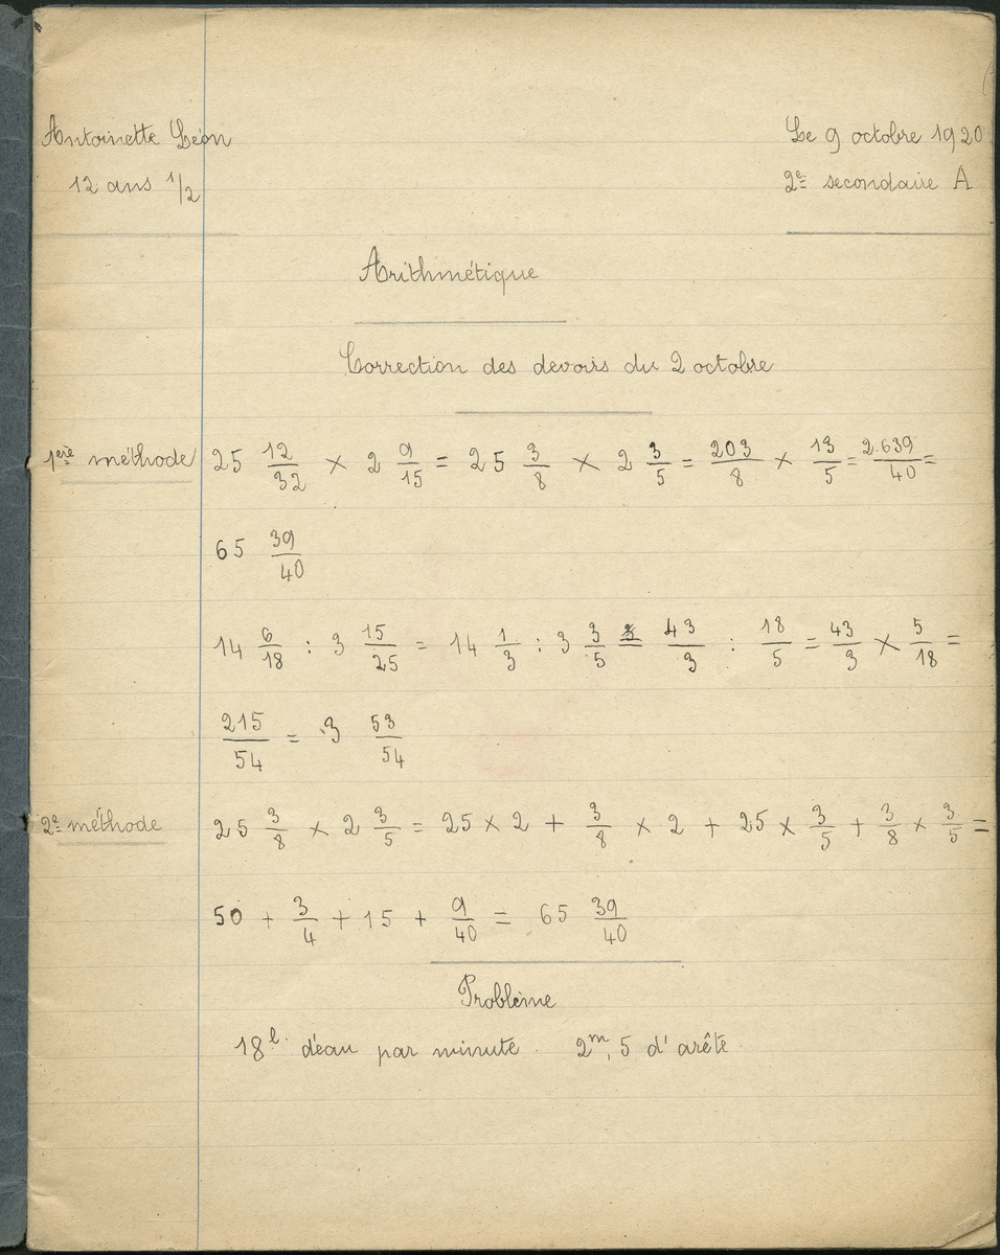 Antoinette Léon
Le 9 octobre 1920
12 ans 1/2
2e secondaire A
Arithmétique
Correction des devoirs du 2 octobre
1ère méthode 25 12/32 × 2 9/15 = 25 3/8 × 2 3/5 = 203/8 × 13/5 = 2.639/40 =
65 39/40
14 6/18 : 3 15/25 = 14 1/3 : 3 3/5 = 43/3 : 18/5 = 43/3 × 5/18 =
215/54 = 3 53/54
2e méthode 25 3/8 × 2 3/5 = 25 × 2 + 3/8 × 2 + 25 × 3/5 + 3/8 × 3/5 =
50 + 3/4 + 15 + 9/40 = 65 39/40
Problème
18l. d'eau par minute. 2m,5 d'arête.